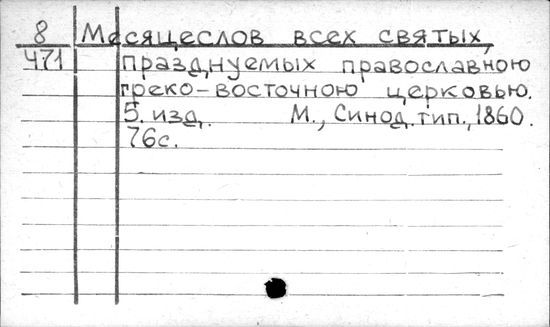 8 Месяцеслов всех святых,
471 празднуемых православною
греко-восточною церковью.
5. изд. М., Синод. тип., 1860.
76с.